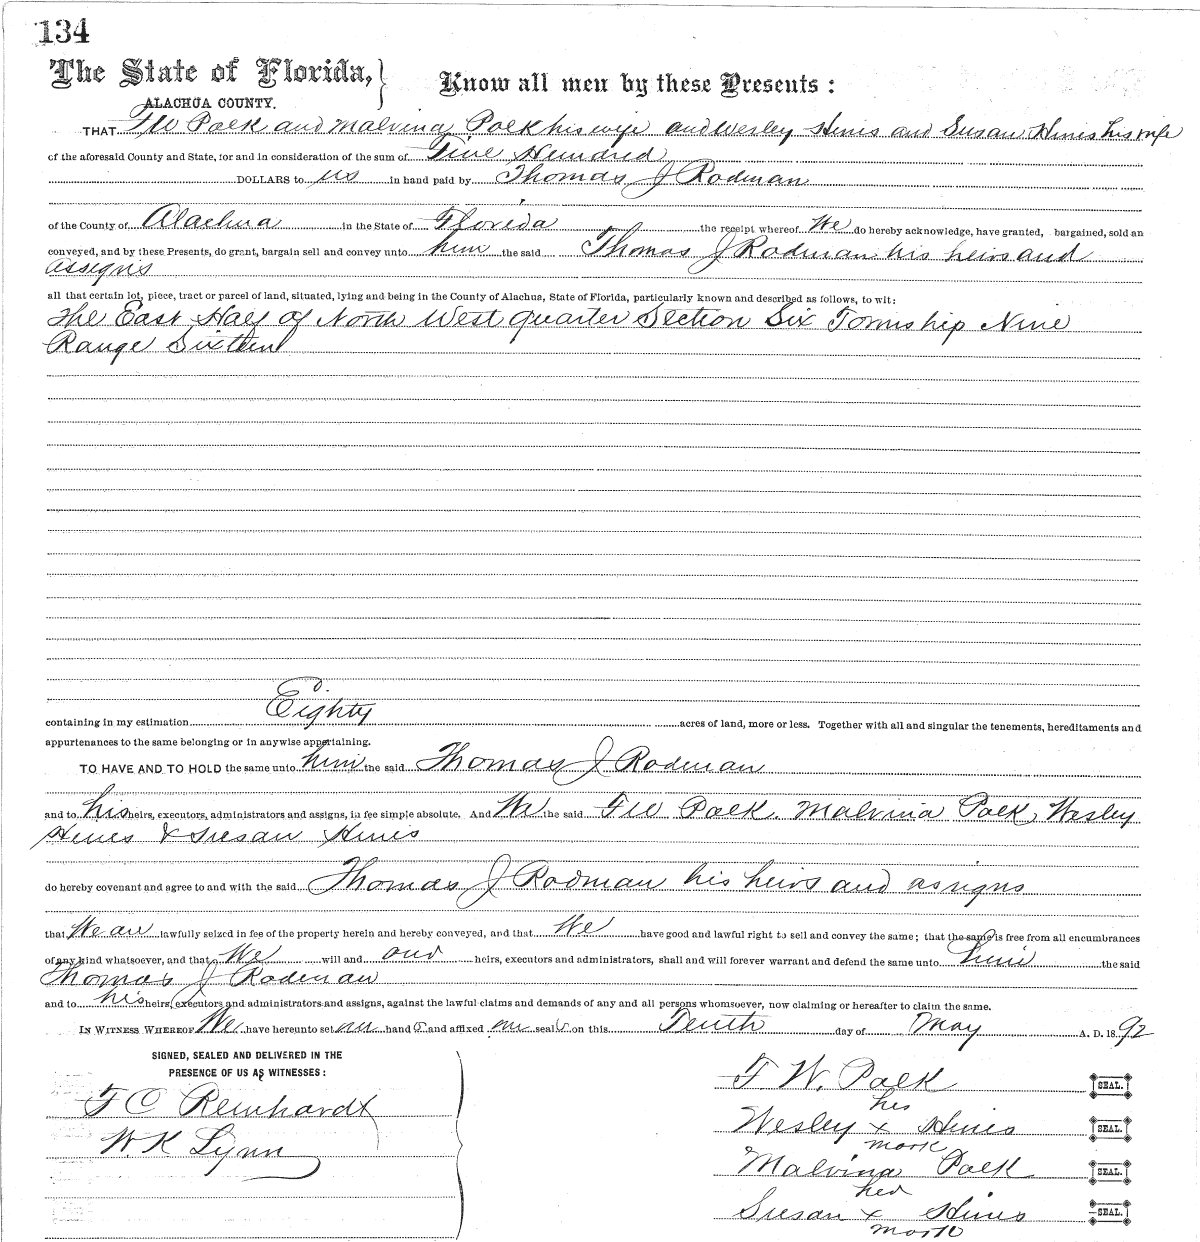 134
The State of Florida,}
Know all men by these Presents:
ALACHUA COUNTY.
THAT F W Polk and Malvina Polk his wife and Wesley Hines and Susan Hines his wife
of the aforesaid County and State, for and in consideration of the sum of Five Hundred
DOLLARS to us in hand paid by Thomas J Rodman
of the County of Alachua in the State of Florida the receipt whereof We do hereby acknowledge, have granted, bargained, sold an
conveyed, and by these Presents, do grant, bargain sell and convey unto him the said Thomas J Rodman his heirs and
assigns
all that certain lot, piece, tract or parcel of land, situated, lying and being in the County of Alachua, State of Florida, particularly known and described as follows, to wit:
The East Half of North West quarter Section Six Township Nine
Range Sixteen
containing in my estimation Eighty acres of land, more or less. Together with all and singular the tenements, hereditaments and
appurtenances to the same belonging or in anywise appertaining.
TO HAVE AND TO HOLD the same unto him the said Thomas J Rodman
and to his heirs, executors, administrators and assigns, in fee simple absolute. And We the said F W Polk. Malvina Polk, Wesley
Hines & Susan Hines
do hereby covenant and agree to and with the said Thomas J Rodman his heirs and assigns
that We are lawfully seized in fee of the property herein and hereby conveyed, and that We have good and lawful right to sell and convey the same; that the same is free from all encumbrances
of any kind whatsoever, and that We will and our heirs, executors and administrators, shall and will forever warrant and defend the same unto him the said
Thomas J Rodman
and to his heirs, executors and administrators and assigns, against the lawful claims and demands of any and all persons whomsoever, now claiming or hereafter to claim the same.
IN WITNESS WHEREOF We have hereunto set our hand s and affixed our seal s on this Tenth day of May A. D. 1892
SIGNED, SEALED AND DELIVERED IN THE
PRESENCE OF US AS WITNESSES:
F C Reinhardt
W. K Lynn
F W. Polk SEAL.
his
Wesley x Hines SEAL.
mark
Malvina Polk SEAL.
her
Susan x Hines SEAL.
mark